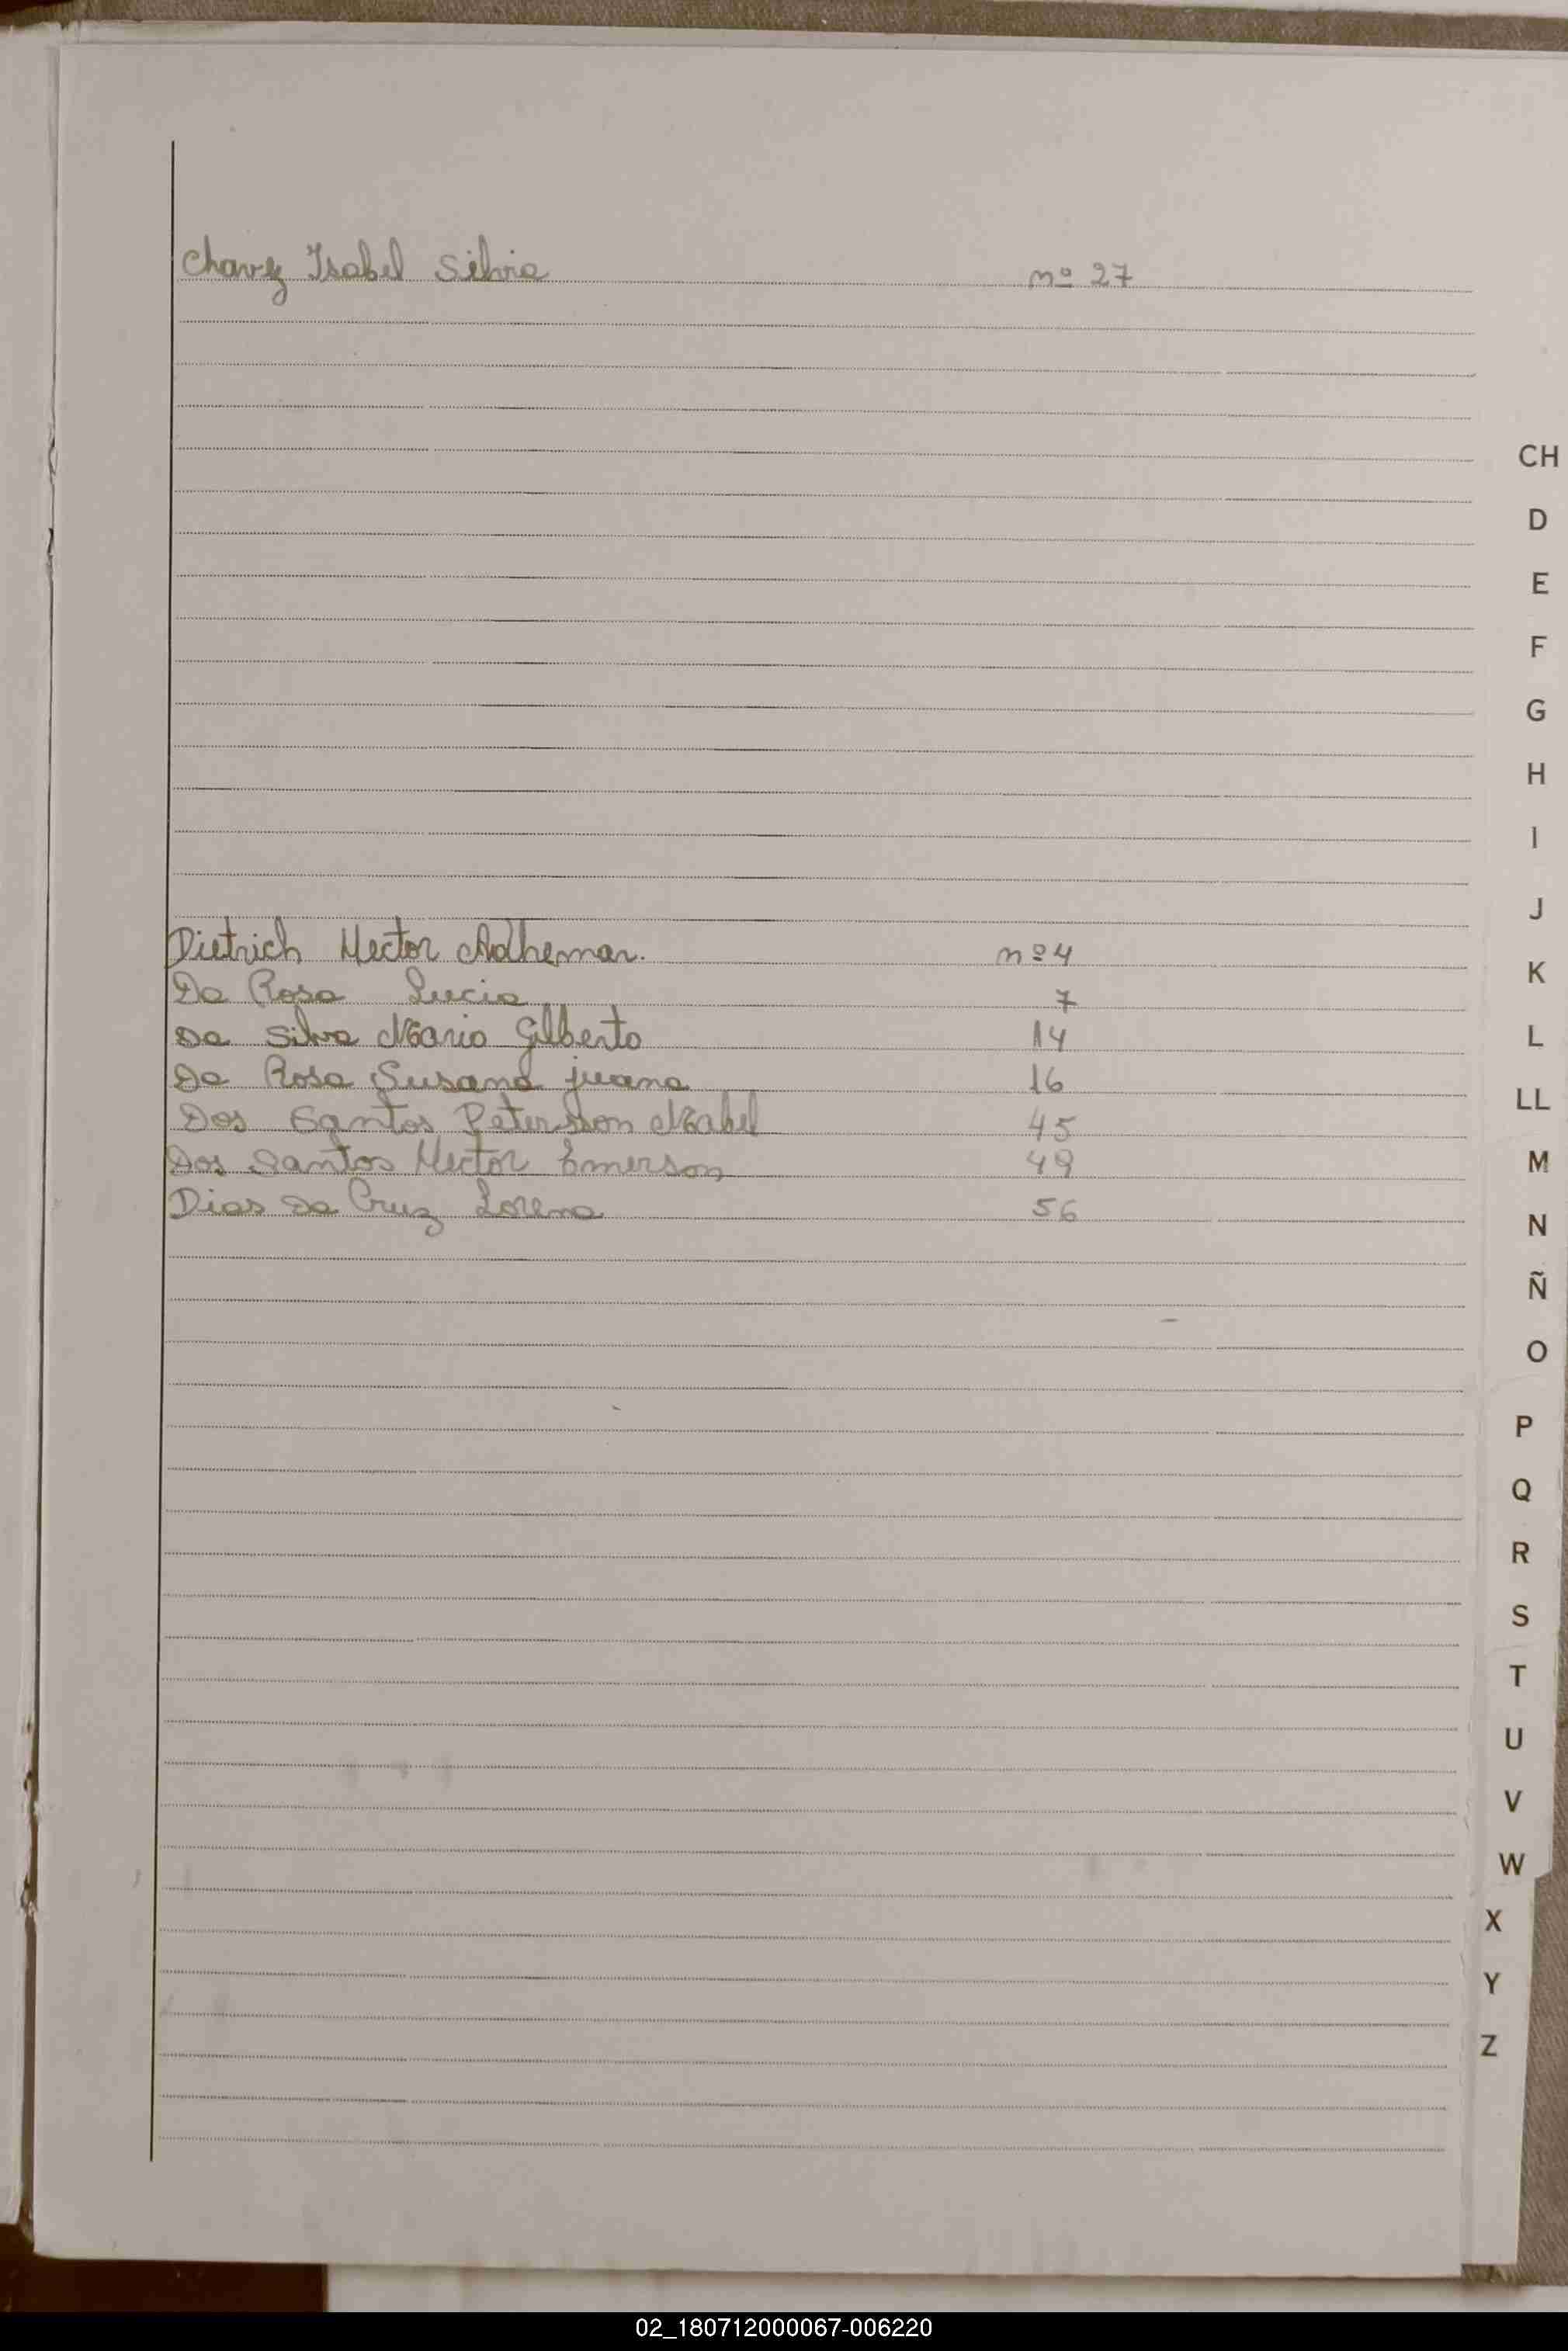 Chavez Isabel Silvia nº 27
Dietrich Hector Adhemar. nº 4
Da Rosa Lucia 7
Da Silva Mario Gilberto 14
Da Rosa Susana juana 16
Dos Santos Petersson Mabel 45
Dos Santos Hector Emerson 49
Dias Da Cruz Lorena 56
CH
D
E
F
G
H
I
J
K
L
LL
M
N
Ñ
O
P
Q
R
S
T
U
V
W
X
Y
Z
02_180712000067-006220